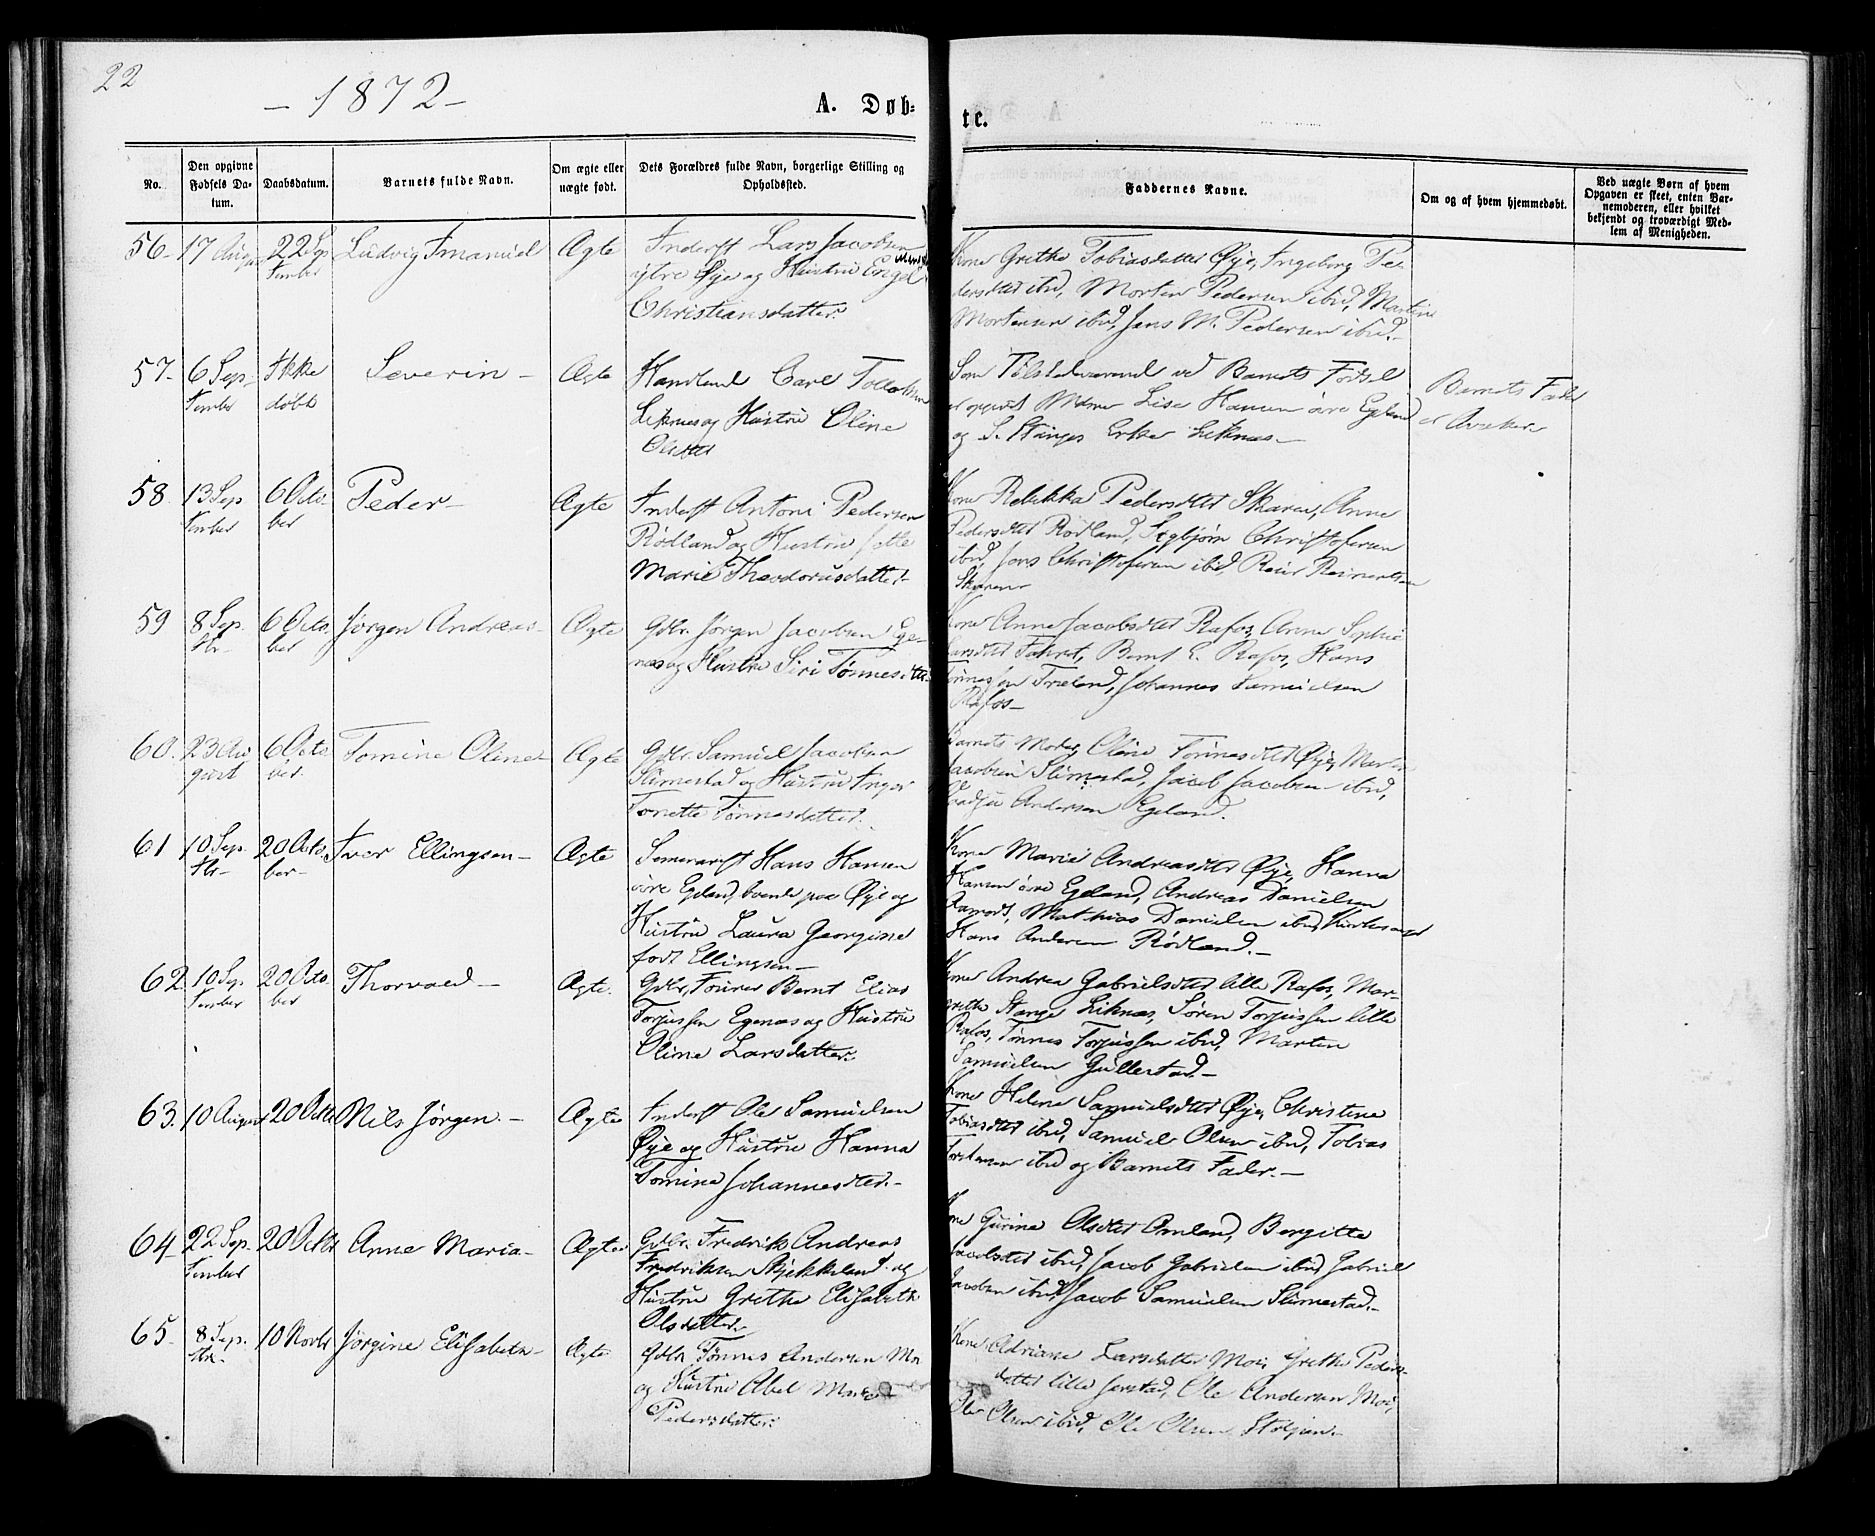 22
- 1872 -
A. Døb-
te.
No.
Den opgivne Fødsels Datum.
Daabsdatum.
Barnets fulde Navn.
Om ægte eller uægte født.
Dets Forældres fulde Navn, borgerlige Stilling og Opholdssted.
Faddernes Navne.
Om og af hvem hjemmedøbt.
Ved uægte Børn af hvem Opgaven er skeet, enten Barnemoderen, eller hvilket bekjendt og troværdigt Medlem af Menigheden.
56- 17 August 22 September Ludvig Imanuel Ægte
Inderst Lars Jacobsen
ytre Øye og Hustru Engel
Christiansdatter
Kone Grethe Tobiasdatter Øye, Ingeborg Pe-
dersdtter ibid, Morten Pedersen ibid, Martin
Mortensen ibid, Jens M. Pedersen ibid.-
57- 6 September Ikke døbt Severin - Ægte
Carl
Liknes og Hustru Oline
Som Tilstedeværende ved Barnets Fødsel
er opgivet Lise Hansen øvre Egeland
og S. Stanges Enke Liknes.-
Barnets Fader
er
58. 13 September 6 October Peder- Ægte
Inderst Antoni Pedersen
Rødland og Hustru
Marie Theodorusdatter.
Kone Rebekka Pedersdtter Skaren, Anne
Pedersdtter Rødland, Christofersen
ibid, Jens Christofersen ibid, Reinertsen
Skaren
59 8 Sep. br- 6 October Jørgen Andreas- Ægte
Gdbr. Jørgen Jacobsen Ege-
næs og Hustru Siri Tønnesdtter
Kone Anne Jacobsdtter Rafos, Anne Sophie
Larsdtter Bernt E. Rafos, Hans
Johannes Samuelsen
Rafos-
60. 23 August 6 October Tomine Oline Ægte
Gdbr. Samuel Jacobsen
Slimestad og Hustru Inger
Tonette Tønnesdatter.
Barnets Moder, Oline Tønnesdtter Øye, Martin
Jacobsen Slimestad, Jacob Jacobsen ibid,
Andersen Egeland.
61 10 Sep. br- 20 October- Iver Ellingsen- Ægte
Hans Hansen
øvre Egeland, boende paa Øye og
Hustru Laura Georgine
født Ellingsen-
Kone Marie Andreasdtter Øye, Hanna
Hansen øvre Egeland, Andreas Danielsen
Mathias Danielsen ibid, Kirkesanger
Hans Andersen Rødland.-
62. 10 September 20 October Thorvald- Ægte.
Gdbr, Bernt Elias
Torjussen Egenæs og Hustru
Oline Larsdatter.
Kone Andrea Gabrielsdtter lille Rafos, Mar-
grethe Stange Liknes, Søren Torjussen lille
Rafos, Tønnes Torjussen ibid, Marten
Samuelsen Gullestad.-
63. 10 August 20 Octbr Nils Jørgen.- Ægte
Inderst Ole Samuelsen
Øye og Hustru Hanna
Tomine Johannesdtter.-
Kone Helene Samuelsdtter Øye, Christine
Tobiasdtter ibid, Samuel Olsen ibid, Tobias
ibid og Barnets Fader.-
64 22 September 20 Octbr Anne Maria- Ægte
Gdbr. Fredrik Andreas
Fredriksen Stjekkeland og
Hustru Grethe Elisabeth
Olsdatter
Kone Gurine Olsdtter Omland, Bergitte
Jacobsdtter ibid, Jacob Gabrielsen ibid, Gabriel
Jacobsen ibid, Jacob Samuelsen Slimestad.-
65- 8 Sep. br- 10 Novbr Jørgine Elisabeth- Ægte
Gdbr Tønnes Andersen Moi
og Hustru Abel
Pedersdatter.
Kone Adriane Larsdatter Moi, Grethe Peders-
datter lille Ole Andersen Moi,
Ole Olsen ibid, Ole Olsen